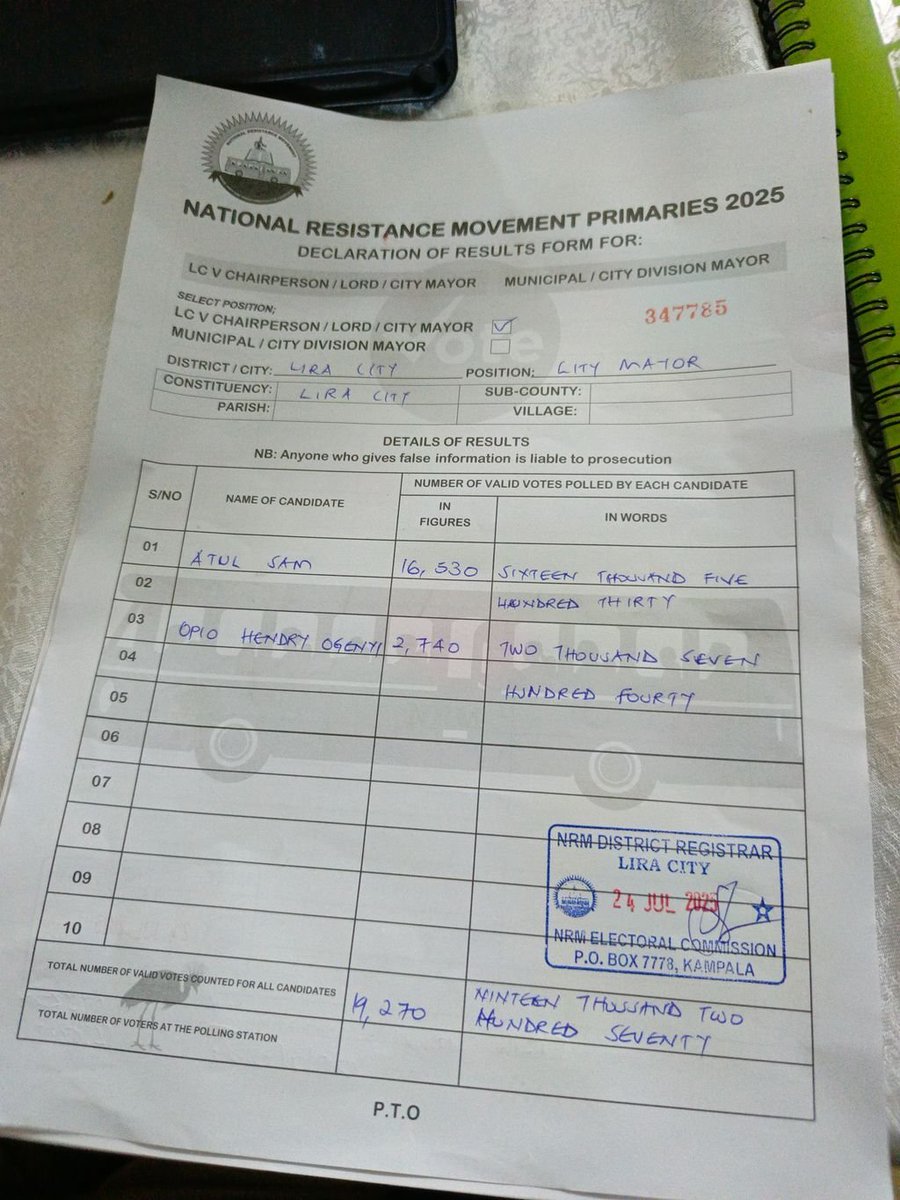 NATIONAL RESISTANCE MOVEMENT
NATIONAL RESISTANCE MOVEMENT PRIMARIES 2025
DECLARATION OF RESULTS FORM FOR:
LC V CHAIRPERSON / LORD / CITY MAYOR MUNICIPAL / CITY DIVISION MAYOR
SELECT POSITION;
LC V CHAIRPERSON / LORD / CITY MAYOR ☑
347785
MUNICIPAL / CITY DIVISION MAYOR ☐
Vote
DISTRICT / CITY: LIRA CITY POSITION: CITY MAYOR
CONSTITUENCY: LIRA CITY SUB-COUNTY:
PARISH: VILLAGE:
DETAILS OF RESULTS
NB: Anyone who gives false information is liable to prosecution
S/NO NAME OF CANDIDATE NUMBER OF VALID VOTES POLLED BY EACH CANDIDATE
IN FIGURES IN WORDS
01 ATUL SAM 16,530 SIXTEEN THOUSAND FIVE
02 HUNDRED THIRTY
03 OPIO HENDRY OGENYI 2,740 TWO THOUSAND SEVEN
04 HUNDRED FOURTY
05
06
07
08
09
10
NRM DISTRICT REGISTRAR
LIRA CITY
24 JUL 2025
NRM ELECTORAL COMMISSION
P.O. BOX 7778, KAMPALA
TOTAL NUMBER OF VALID VOTES COUNTED FOR ALL CANDIDATES 19,270 NINTEEN THOUSAND TWO
HUNDRED SEVENTY
TOTAL NUMBER OF VOTERS AT THE POLLING STATION
P.T.O